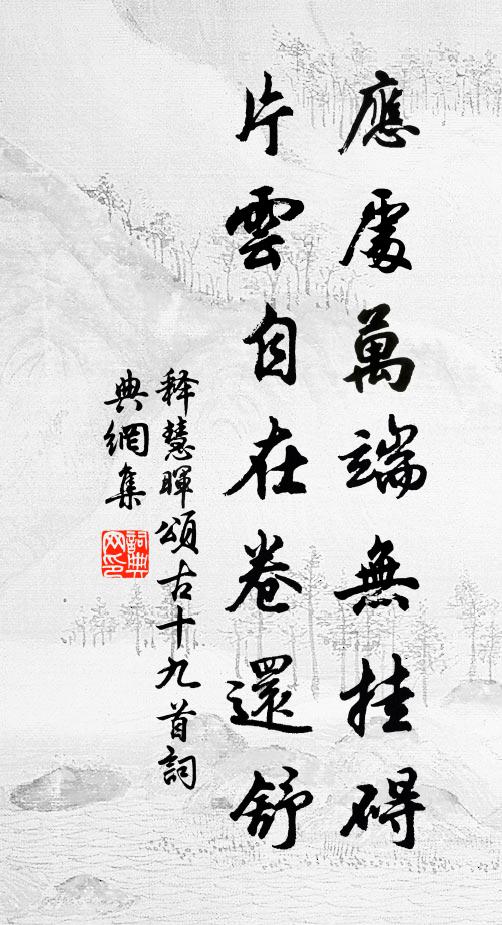 應處萬端無挂碍
片雲自在卷還舒
释慧暉頌古十九首詞
典網集
詞典
网印